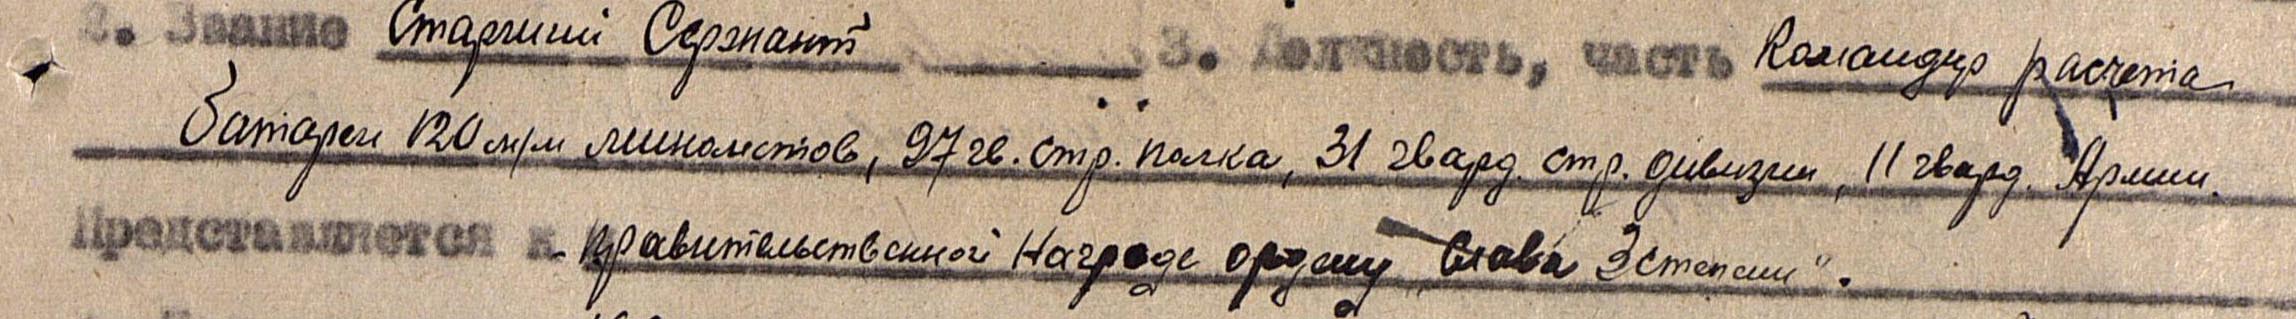 2. Звание Старший Сержант 3. Должность, часть Командир расчета
батареи 120 м/м минометов, 97 гв. стр. полка, 31 гвард. стр. дивизии, 11 гвард. Армии.
Представляется к правительственной Награде ордену „Слава 3 степени".